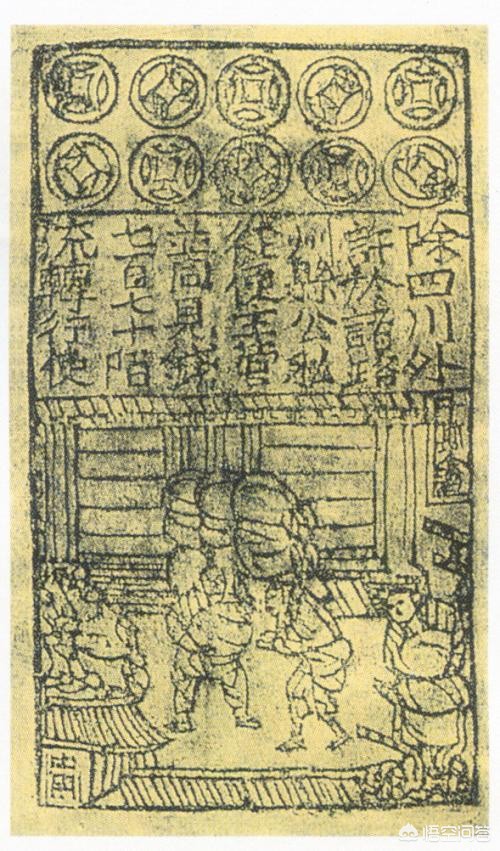 除四川外
許於諸路
州縣公私
從便主管
並同見錢
七百七十陌
流轉行使
悟空问答